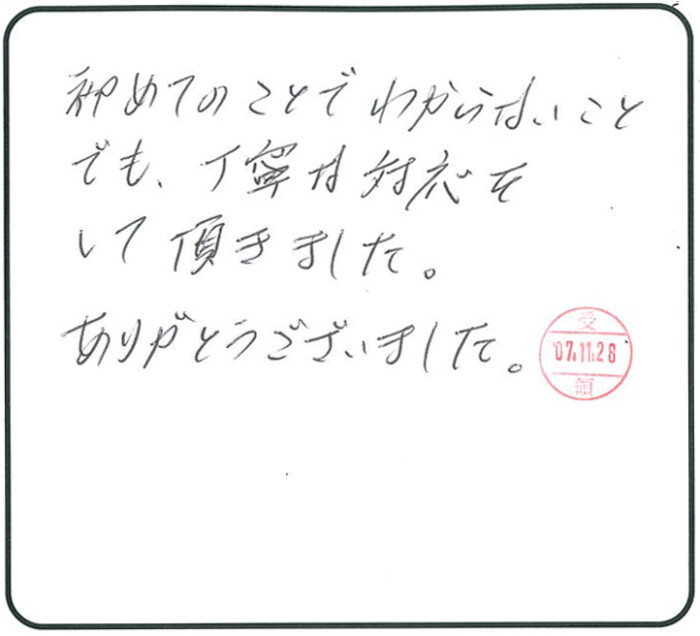 初めてのことでわからないこと
でも、丁寧な対応を
して頂きました。
ありがとうございました。
受
'07.11.28
領